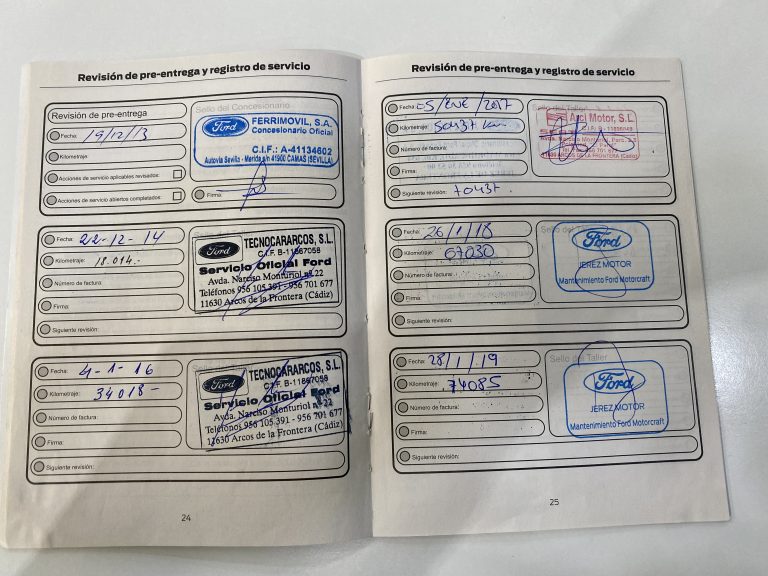 Revisión de pre-entrega y registro de servicio
Revisión de pre-entrega
Fecha: 19/12/13
Kilometraje:
Acciones de servicio aplicables revisados:
Acciones de servicio abiertos completados:
Sello del Concesionario
Ford FERRIMOVIL, S.A.
Concesionario Oficial
C.I.F.: A-41134602
Autovía Sevilla - Mérida s/n 41900 CAMAS (SEVILLA)
Firma:
Fecha: 22-12-14
Kilometraje: 18.014.-
Número de factura:
Firma:
Siguiente revisión:
Ford TECNOCARARCOS, S.L.
C.I.F. B-11867058
Servicio Oficial Ford
Avda. Narciso Monturiol nº 22
Teléfonos 956 105 391 - 956 701 677
11630 Arcos de la Frontera (Cádiz)
Fecha: 4-1-16
Kilometraje: 34018-
Número de factura:
Firma:
Siguiente revisión:
Ford TECNOCARARCOS, S.L.
C.I.F. B-11867058
Servicio Oficial Ford
Avda. Narciso Monturiol nº 22
Teléfonos 956 105 391 - 956 701 677
11630 Arcos de la Frontera (Cádiz)
24
Revisión de pre-entrega y registro de servicio
Fecha: 05/ENE/2017
Kilometraje: 50437 km
Número de factura:
Firma:
Siguiente revisión: 70437.
Sello del Taller
Arci Motor, S.L
11630 ARCOS DE LA FRONTERA (Cádiz)
Fecha: 26/1/18
Kilometraje: 67030
Número de factura:
Firma:
Siguiente revisión:
Ford
JEREZ MOTOR
Mantenimiento Ford Motorcraft
Fecha: 28/1/19
Kilometraje: 74085
Número de factura:
Firma:
Siguiente revisión:
Sello del Taller
Ford
JEREZ MOTOR
Mantenimiento Ford Motorcraft
25